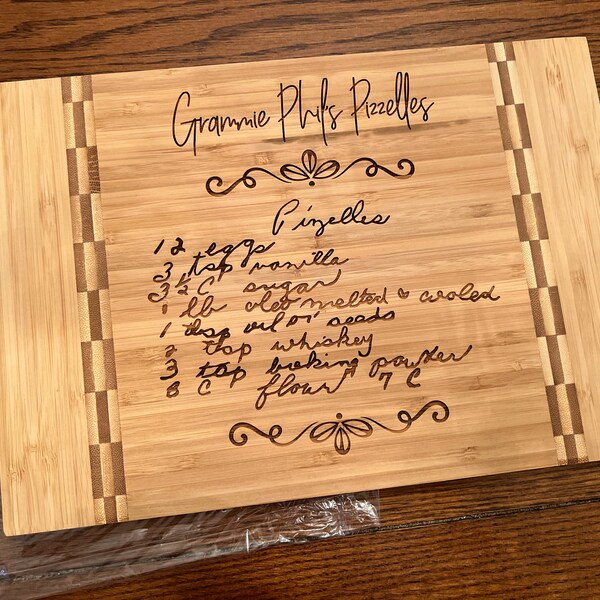 Grammie Phil's Pizzelles
Pizelles
12 eggs
3 tsp vanilla
3 ½ C sugar
1 lb oleo melted & cooled
1 tbsp oil or seeds
2 tbsp whiskey
3 tsp baking powder
8 C flour 7 C